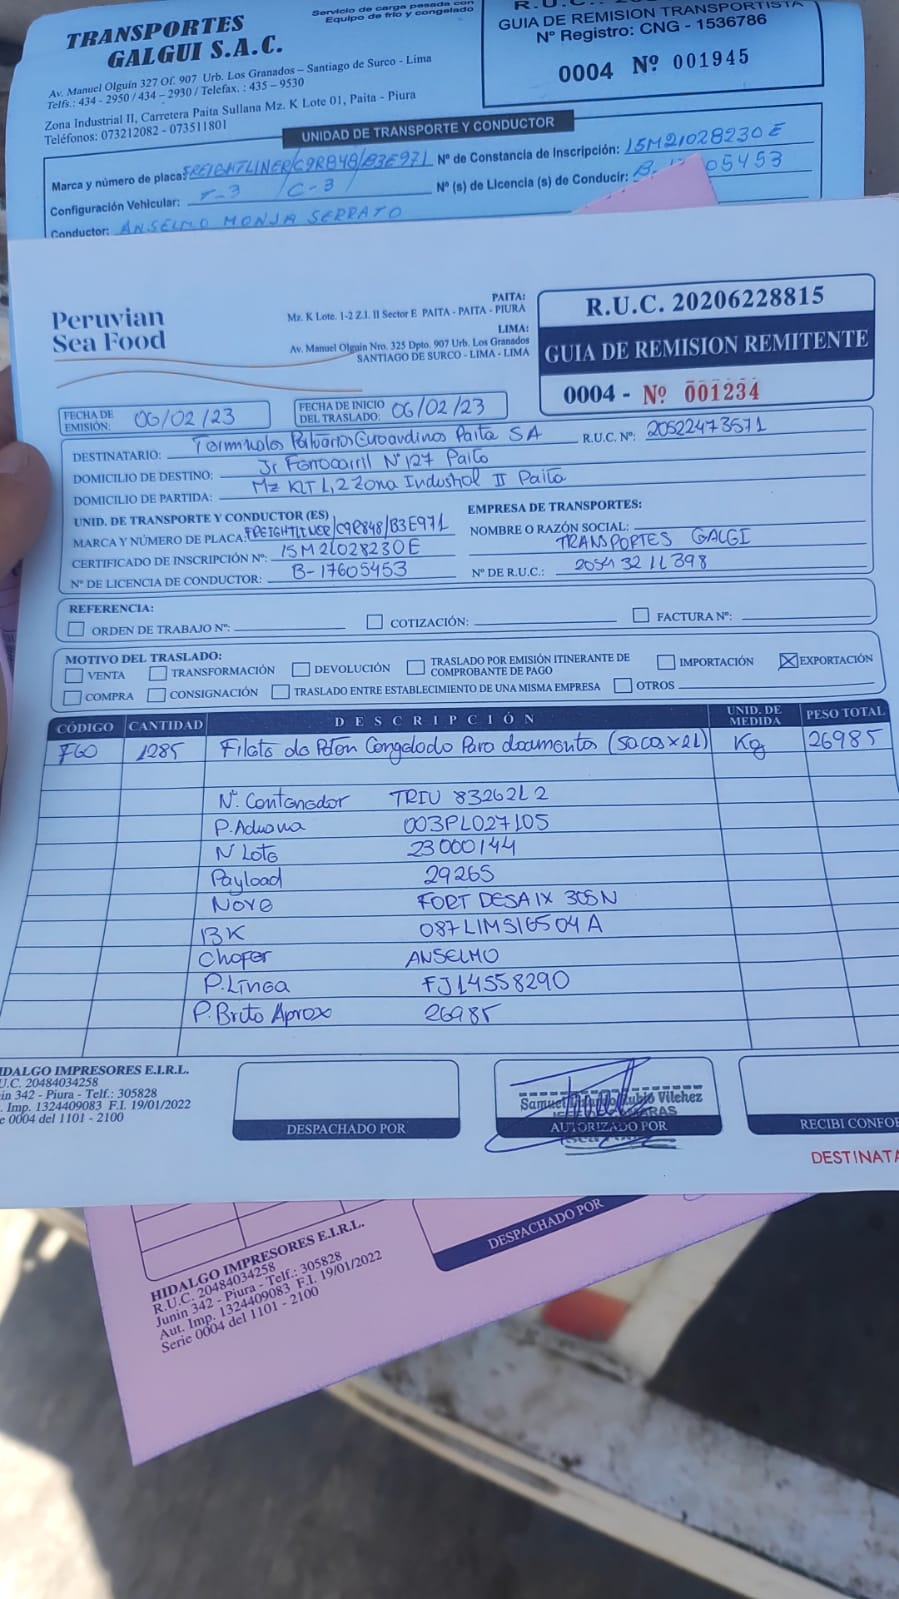 TRANSPORTES
GALGUI S.A.C.
Servicio de carga pesada con
Equipo de frío y congelado
Av. Manuel Olguín 327 Of. 907 Urb. Los Granados - Santiago de Surco - Lima
Telfs.: 434 - 2950 / 434 - 2930 / Telefax. : 435 - 9530
Zona Industrial II, Carretera Paita Sullana Mz. K Lote 01, Paita - Piura
Teléfonos: 073212082 - 073511801
GUIA DE REMISION TRANSPORTISTA
Nº Registro: CNG - 1536786
0004 Nº 001945
UNIDAD DE TRANSPORTE Y CONDUCTOR
Marca y número de placa: FREIGHTLINER/C9R848/B3E971 Nº de Constancia de Inscripción: 15M21028230E
Configuración Vehicular: T-3 / C-3 Nº (s) de Licencia (s) de Conducir: 05453
Conductor: ANSELMO MONJA SERRATO
Peruvian
Sea Food
PAITA:
Mz. K Lote. 1-2 Z.I. II Sector E PAITA - PAITA - PIURA
LIMA:
Av. Manuel Olguin Nro. 325 Dpto. 907 Urb. Los Granados
SANTIAGO DE SURCO - LIMA - LIMA
R.U.C. 20206228815
GUIA DE REMISION REMITENTE
0004 - Nº 001234
FECHA DE EMISIÓN: 06/02/23
FECHA DE INICIO DEL TRASLADO: 06/02/23
DESTINATARIO: Terminales Portuarios Euroandinos Paita SA R.U.C. Nº: 20522473571
DOMICILIO DE DESTINO: Jr Ferrocarril Nº 127 Paita
DOMICILIO DE PARTIDA: Mz K LT 1,2 Zona Industrial II Paita
UNID. DE TRANSPORTE Y CONDUCTOR (ES)
MARCA Y NÚMERO DE PLACA: FREIGHTLINER/C9R848/B3E971
CERTIFICADO DE INSCRIPCIÓN Nº: 15M21028230E
Nº DE LICENCIA DE CONDUCTOR: B-17605453
EMPRESA DE TRANSPORTES:
NOMBRE O RAZÓN SOCIAL:
TRANSPORTES GALGI
Nº DE R.U.C.: 20543211398
REFERENCIA:
ORDEN DE TRABAJO Nº: COTIZACIÓN: FACTURA Nº:
MOTIVO DEL TRASLADO:
VENTA TRANSFORMACIÓN DEVOLUCIÓN TRASLADO POR EMISIÓN ITINERANTE DE COMPROBANTE DE PAGO IMPORTACIÓN EXPORTACIÓN
COMPRA CONSIGNACIÓN TRASLADO ENTRE ESTABLECIMIENTO DE UNA MISMA EMPRESA OTROS
CÓDIGO CANTIDAD DESCRIPCIÓN UNID. DE MEDIDA PESO TOTAL
F60 1285 Filete de Poton Congelado Para documentos (sacos x 21) Kg 26985
Nº Contenedor TRIU 832621 2
P. Aduana 003PL027105
N Lote 23000144
Payload 29265
Nave FORT DESAIX 305N
BK 087LIMS16504A
Chofer ANSELMO
P. Linea FJ14558290
P. Bruto Aprox 26985
HIDALGO IMPRESORES E.I.R.L.
U.C. 20484034258
in 342 - Piura - Telf.: 305828
. Imp. 1324409083 F.I. 19/01/2022
e 0004 del 1101 - 2100
DESPACHADO POR
Rubio Vilchez
AUTORIZADO POR
RECIBI CONFO
DESTINATA
DESPACHADO POR
HIDALGO IMPRESORES E.I.R.L.
R.U.C. 20484034258
Junin 342 - Piura - Telf.: 305828
Aut. Imp. 1324409083 F.I. 19/01/2022
Serie 0004 del 1101 - 2100